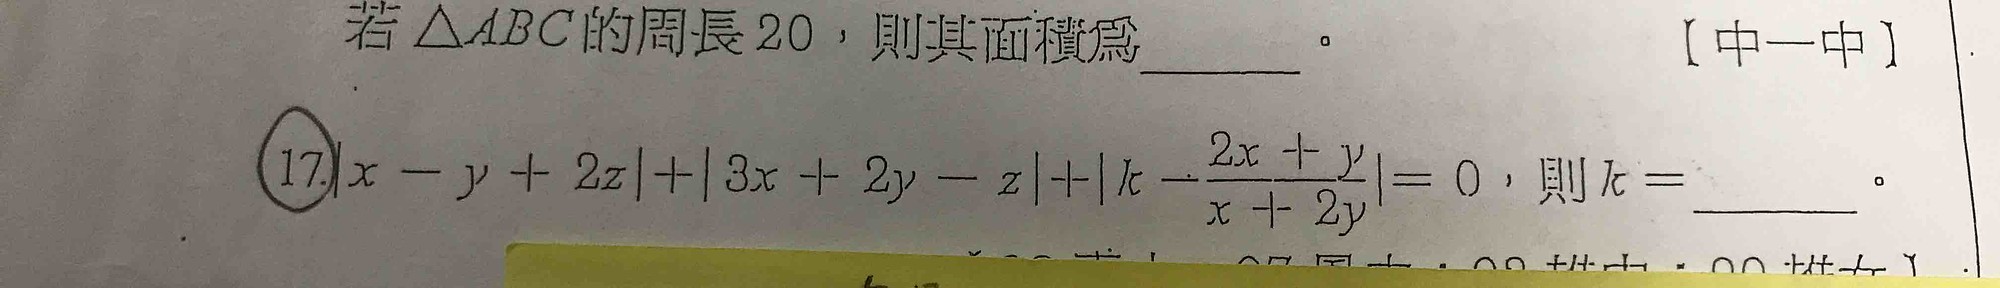 若△ABC的周長20，則其面積為______。 【中一中】
17.|x − y + 2z|+|3x + 2y − z|+|k − \frac{2x + y}{x + 2y}|= 0，則k =______。